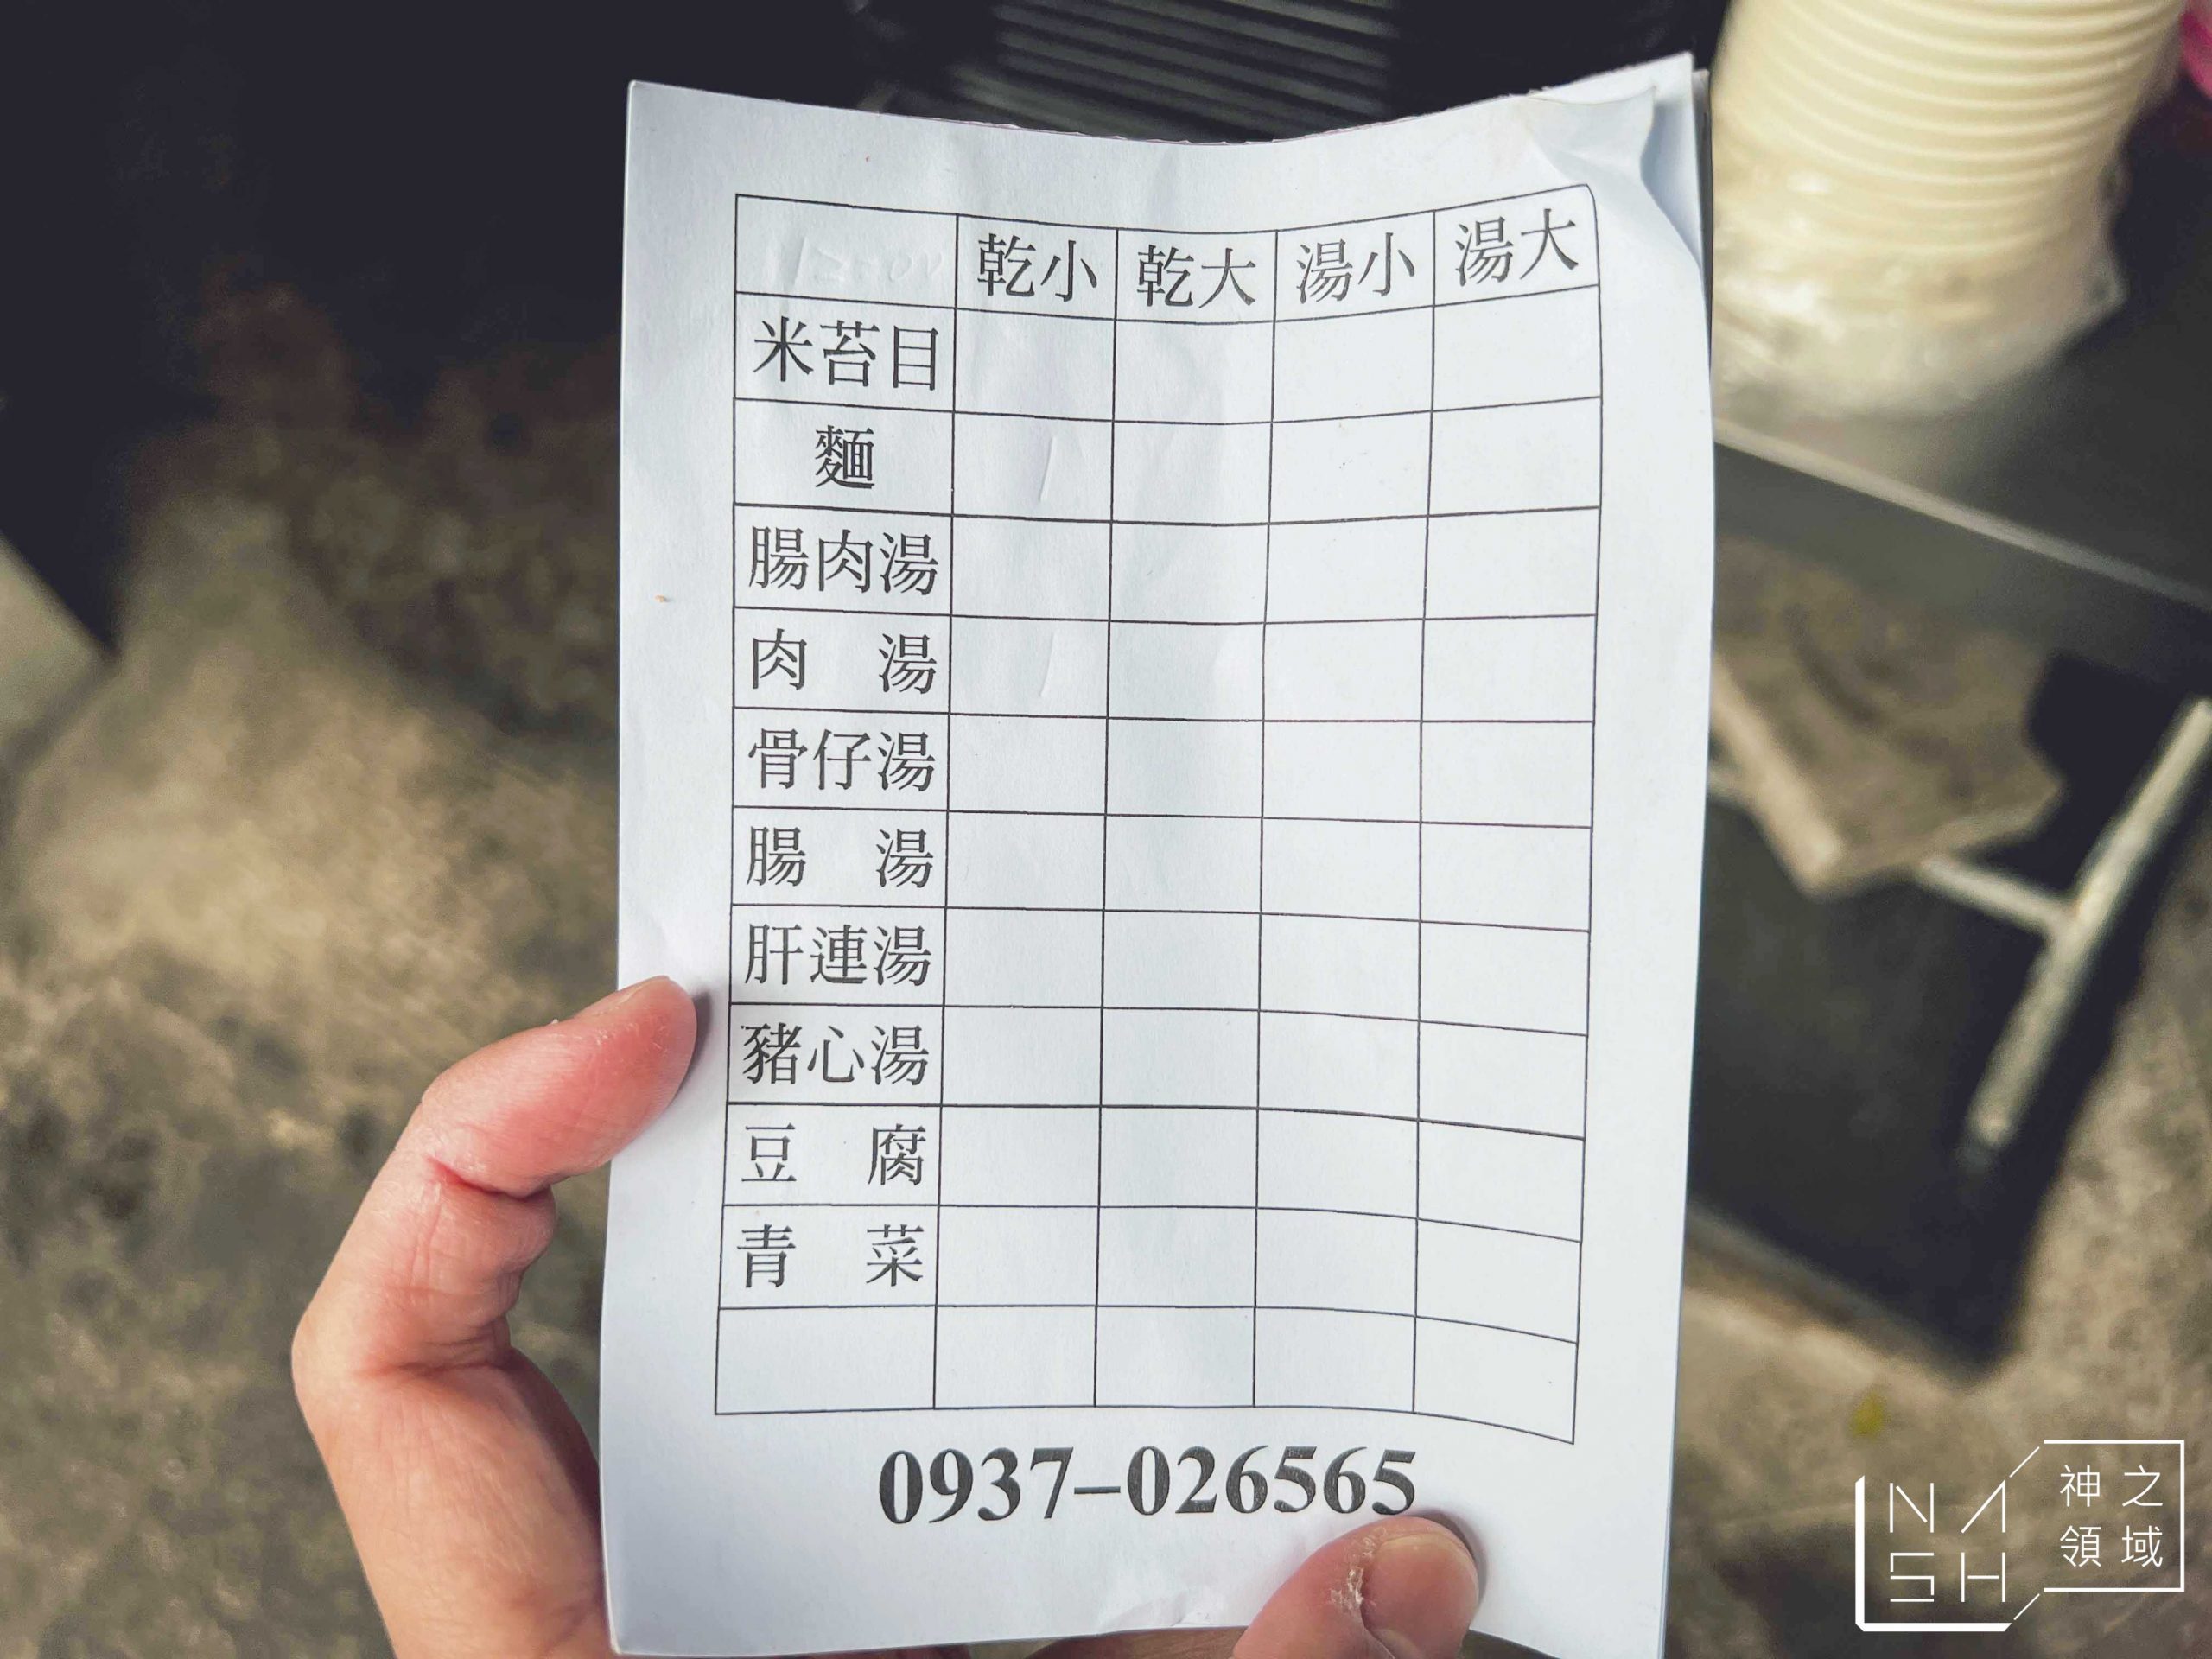 乾小 乾大 湯小 湯大
米苔目
麵
腸肉湯
肉 湯
骨仔湯
腸 湯
肝連湯
豬心湯
豆 腐
青 菜
0937-026565
NASH
神之
領域